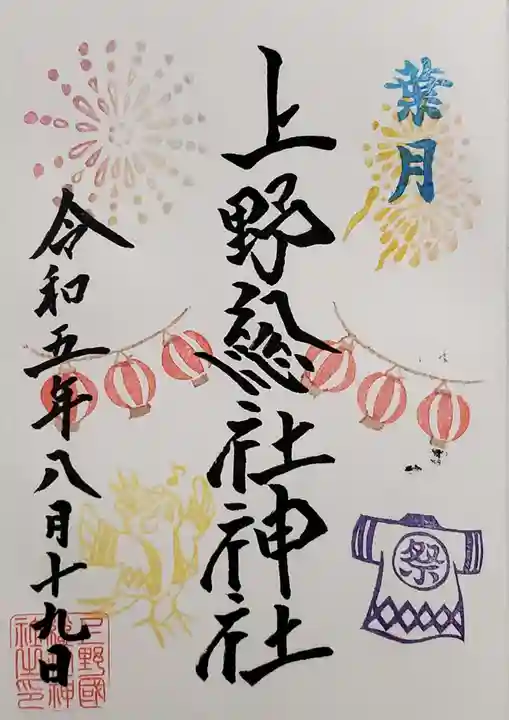 葉月
上野總社神社
祭
令和五年八月十九日
上野國
總社神
社之印